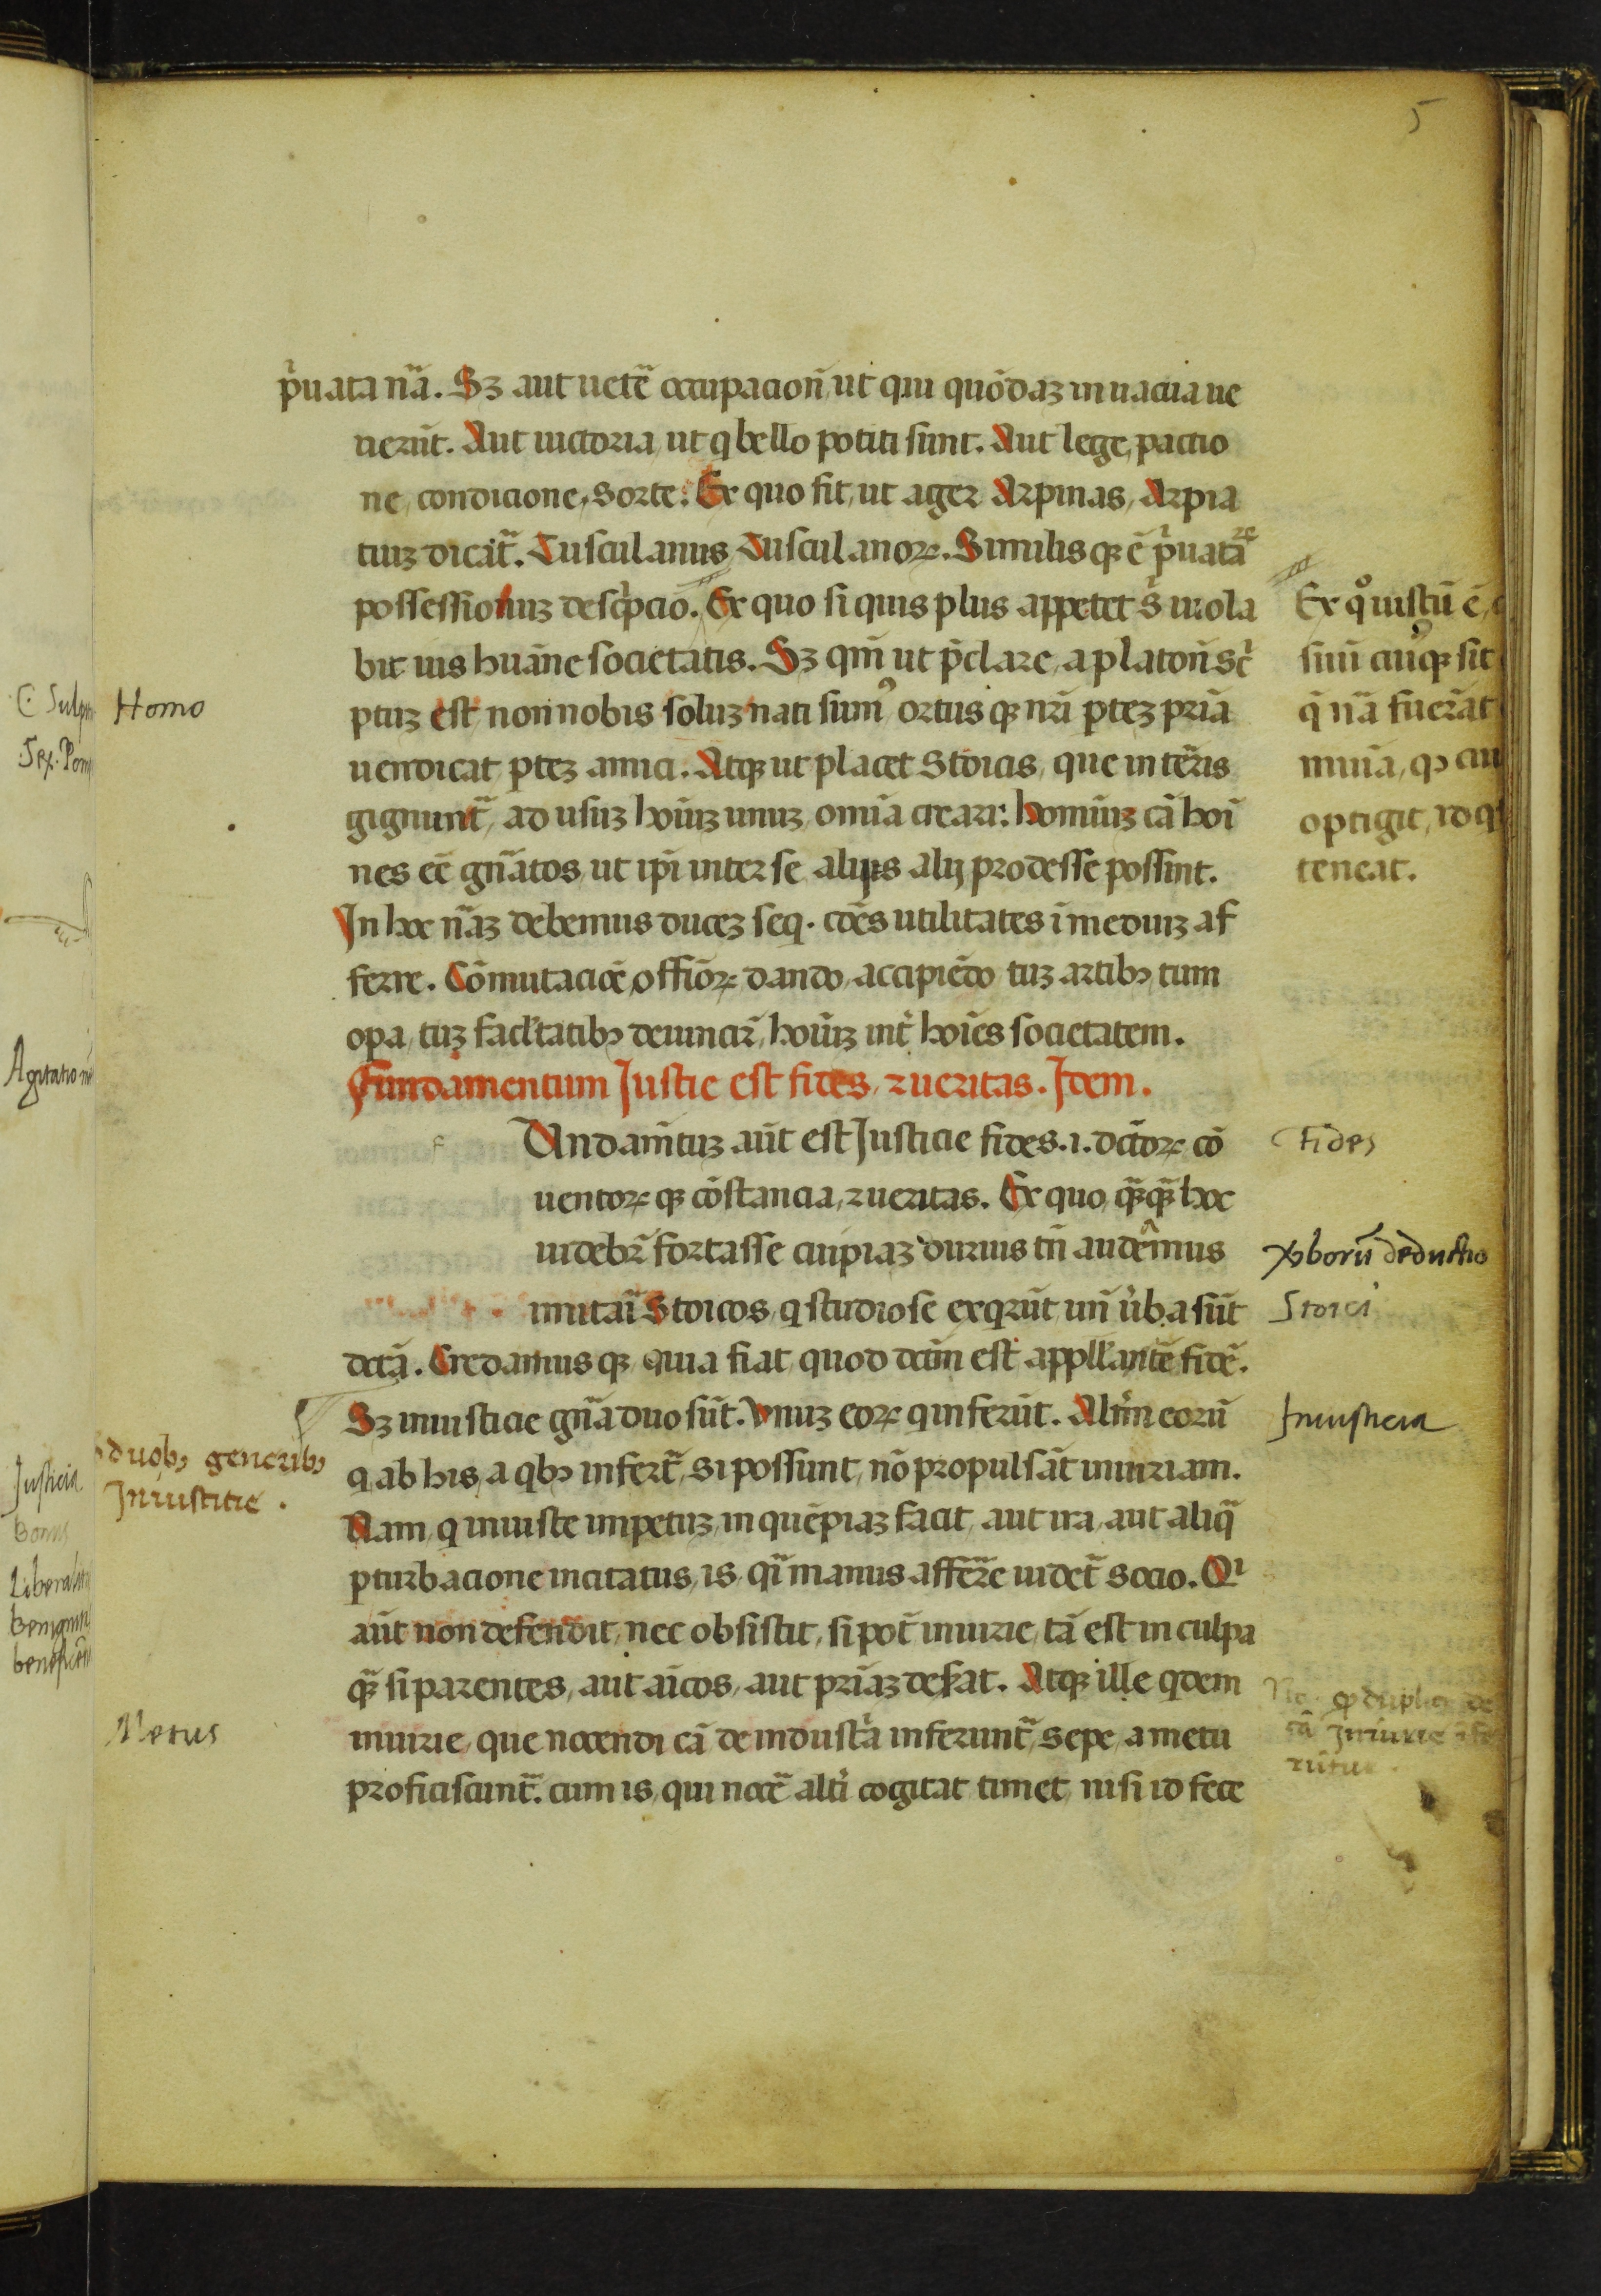 5
p̾uata nā. Sꝫ aut uetē occupacioñ ut qui quōdaꝫ in uacua ue
nerūt. Aut uictoria, ut q bello potiti sunt. Aut lege, pactio
ne, condicione, sorte. Ex quo fit, ut ager Arpinas, Arpia
tuꝫ dicat᷑. Tusculanus Tusculanoꝝ. Similisqꝫ ē p̾uataꝝ
possessionuꝫ desc̾pcio. Ex quo si quis plus appetet s̾ uiola
bit ius huāne societatis. Sꝫ qm̄ ut p̄clare, a platoñ sc̾
ptuꝫ est non nobis soluꝫ nati sumꝰ ortusqꝫ nr̄i pteꝫ pr̄iā
uendicat pteꝫ amici. Atqꝫ ut placet Stoicis, que in teris
gignunt᷑, ad usuꝫ hoīuꝫ unuꝫ omīa creari: hominuꝫ cā hoī
nes eē gn̄atos, ut ip̄i inter se aliys alij prodesse possint.
In hoc nāꝫ debemus duceꝫ seq. cōēs utilitates ī mediuꝫ af
ferre. Cōmutaciōē offīoꝝ dando, accipiēdo tuꝫ artibꝫ tum
opa, tuꝫ facl̄tatibꝫ deuincir̄, hoīuꝫ int̾ hoīes societatem.
Fundamentum Justie est fides, ⁊ ueritas. Idem.
f
Undam̄tuꝫ aūt est Justicie fides. .i. dc̄oꝝ cō
uentoꝝqꝫ cōstancia, ⁊ ueritas. Ex quo, qꝫ̄qꝫ̄ hoc
uidebr̄ fortasse cuipiaꝫ durius tn̄ audēmus
imitari Stoicos, q studiose exqrūt un̄ u̾ba sūt
dc̄ā. Credamusqꝫ quia fiat quod dc̄m est appll̄antē fidē.
Sꝫ iniusticie gn̄a duo sūt. Unuꝫ eoꝝ q inferūt. Alt̾m eorū
q ab his, a qbꝫ infert᷑, si possunt, nō propulsāt iniuriam.
Nam, q iniuste impetuꝫ in quēpiaꝫ facit, aut ira, aut aliq̄
pturbacione incitatus, is, q̄i manus afferre uidet᷑ socio. Qi
aūt non defendit, nec obsistit, si pot̄ iniurie, tā est in culpa
qꝫ̄ si parentes, aut aīcos, aut pr̄iaꝫ defat. Atqꝫ ille qdem
iniurie, que nocendi cā de indust̾a inferunt᷑, sepe, a metu
proficiscunt᷑. cum is, qui nocē alt̾i cogitat timet, nisi id fece
Ex qͦ iustū ē,
suū cuiqꝫ sit
q̄ nā fuerāt
munia, qꝫ cui
optigit, id q
teneat.
Fides
Stoici
Iniusticia
Homo
duobꝫ generibꝫ
Iniustitie.
Metus
C. Sulpi
Sex. Pom
Agitatio
Justicia
Bonus
Liberalit